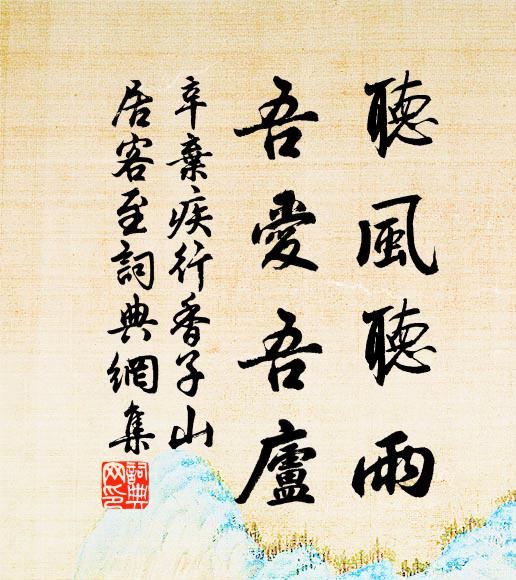 聽風聽雨
吾愛吾廬
辛棄疾行香子山
居客至詞典網集
詞典網印